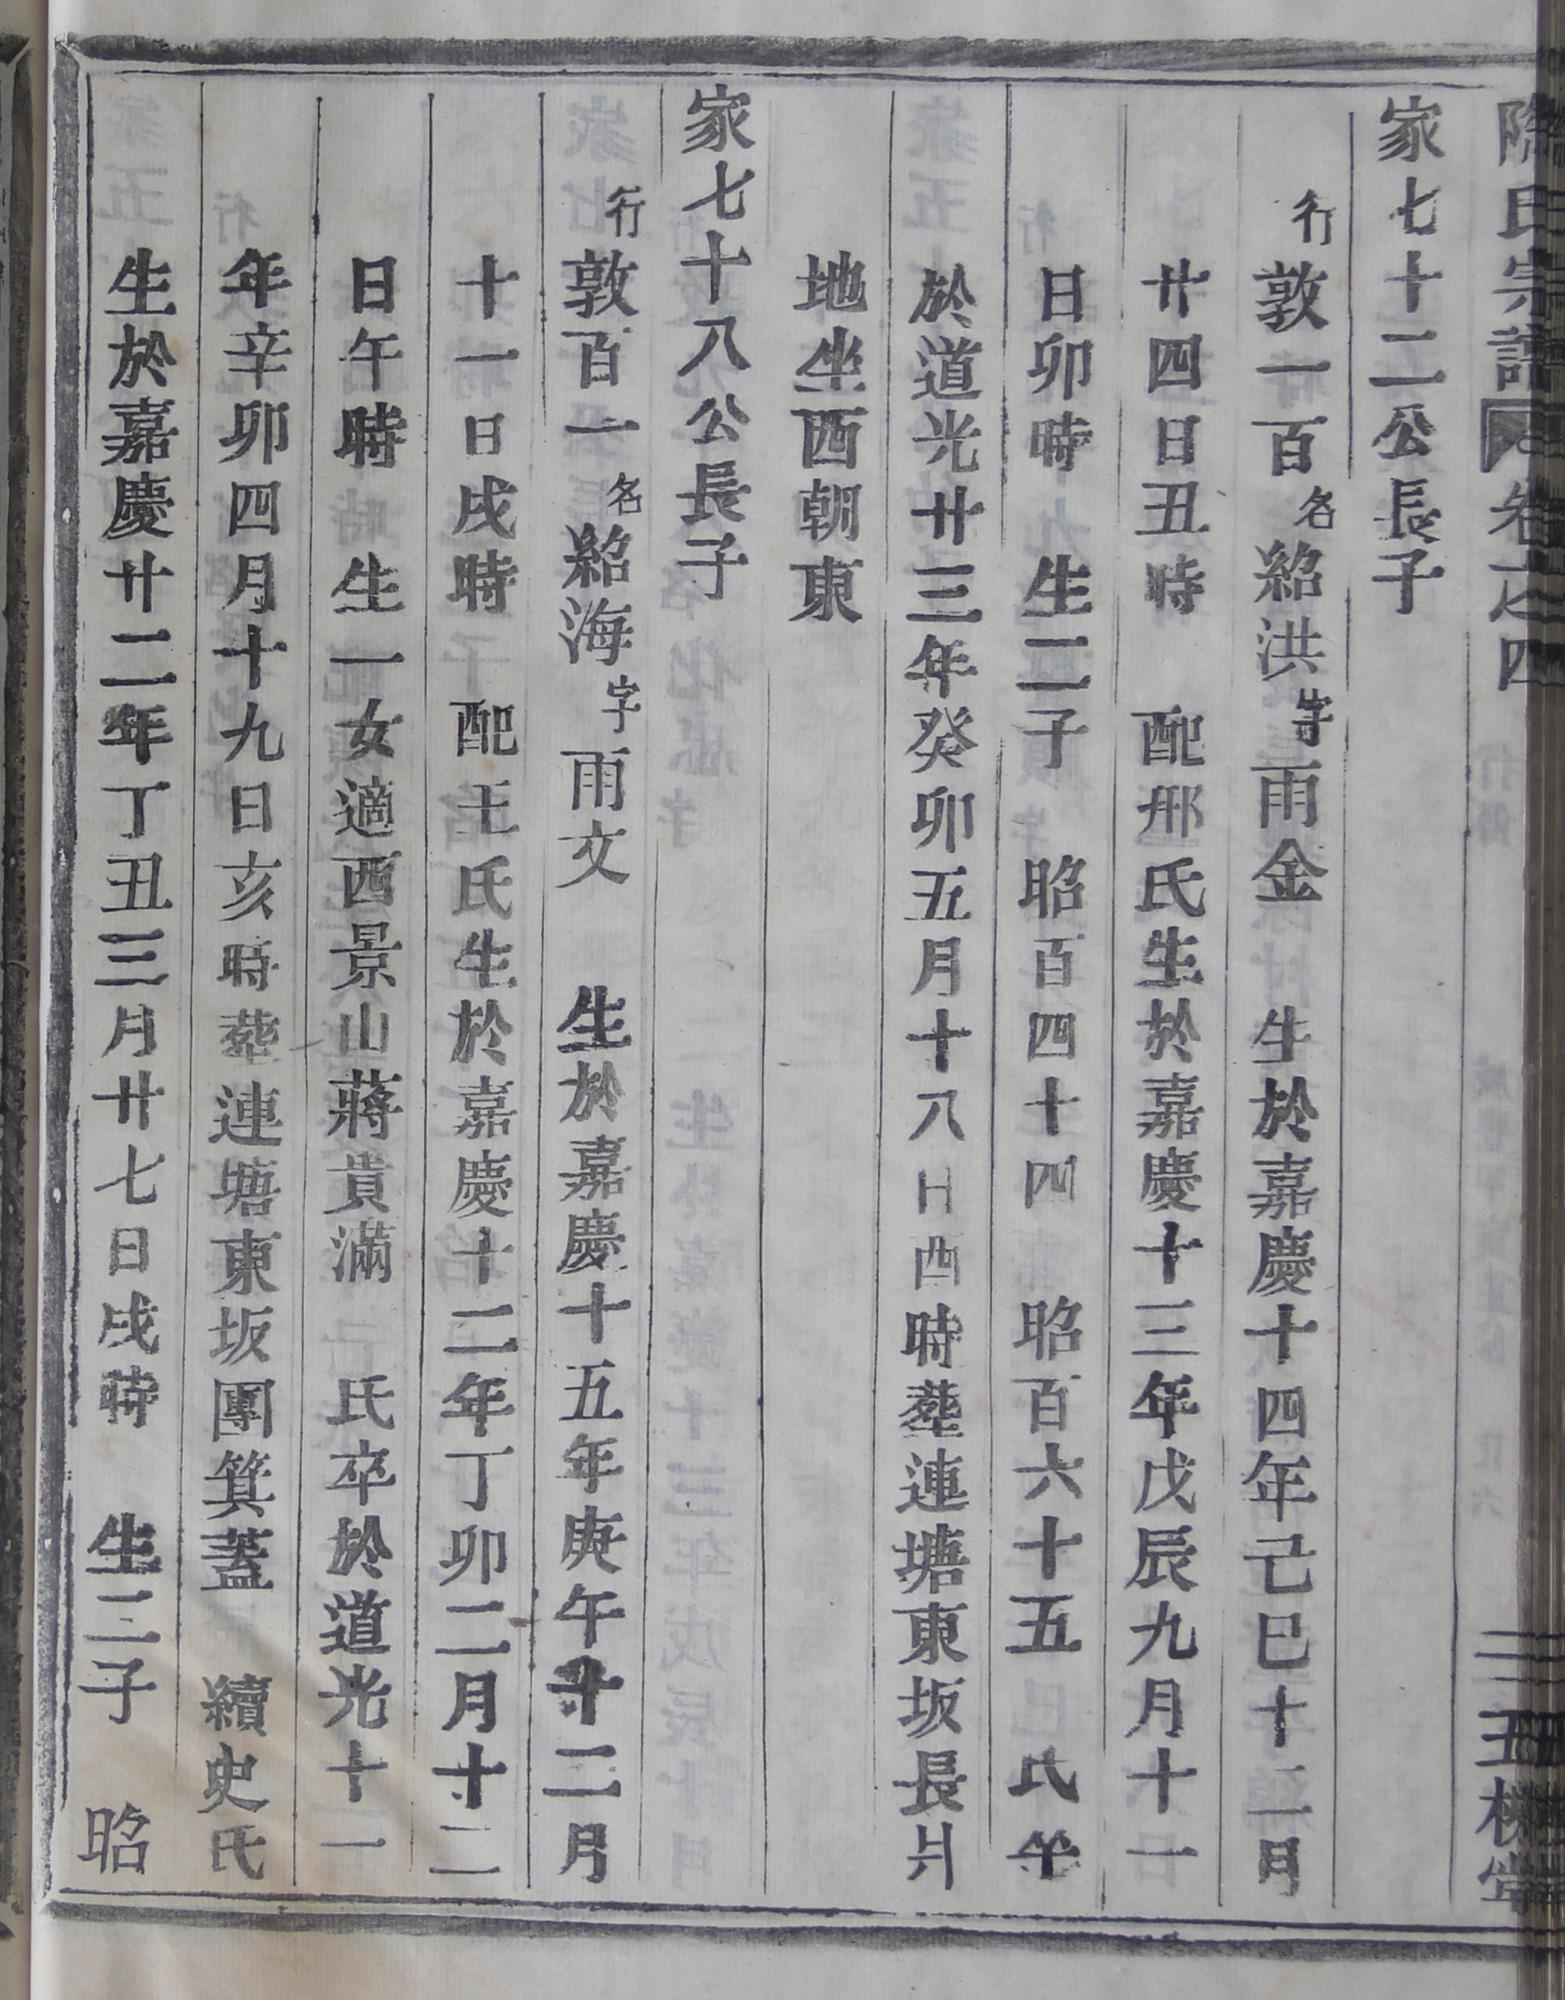 陳氏宗譜 卷之四 三玉樹堂
家七十二公長子
行敦一百名紹洪字雨金 生於嘉慶十四年己巳十二月
廿四日丑時 配邢氏生於嘉慶十三年戊辰九月十一
日卯時 生二子 昭百四十四 昭百六十五 氏卒
於道光廿三年癸卯五月十八日酉時葬連塘東坂長爿
地坐西朝東
家七十八公長子
行敦百一名紹海字雨文 生於嘉慶十五年庚午十二月
十一日戌時 配王氏生於嘉慶十二年丁卯二月十二
日午時 生一女適西景山蔣貴滿 氏卒於道光十一
年辛卯四月十九日亥時葬連塘東坂團箕蓋 續史氏
生於嘉慶廿二年丁丑三月廿七日戌時 生二子 昭